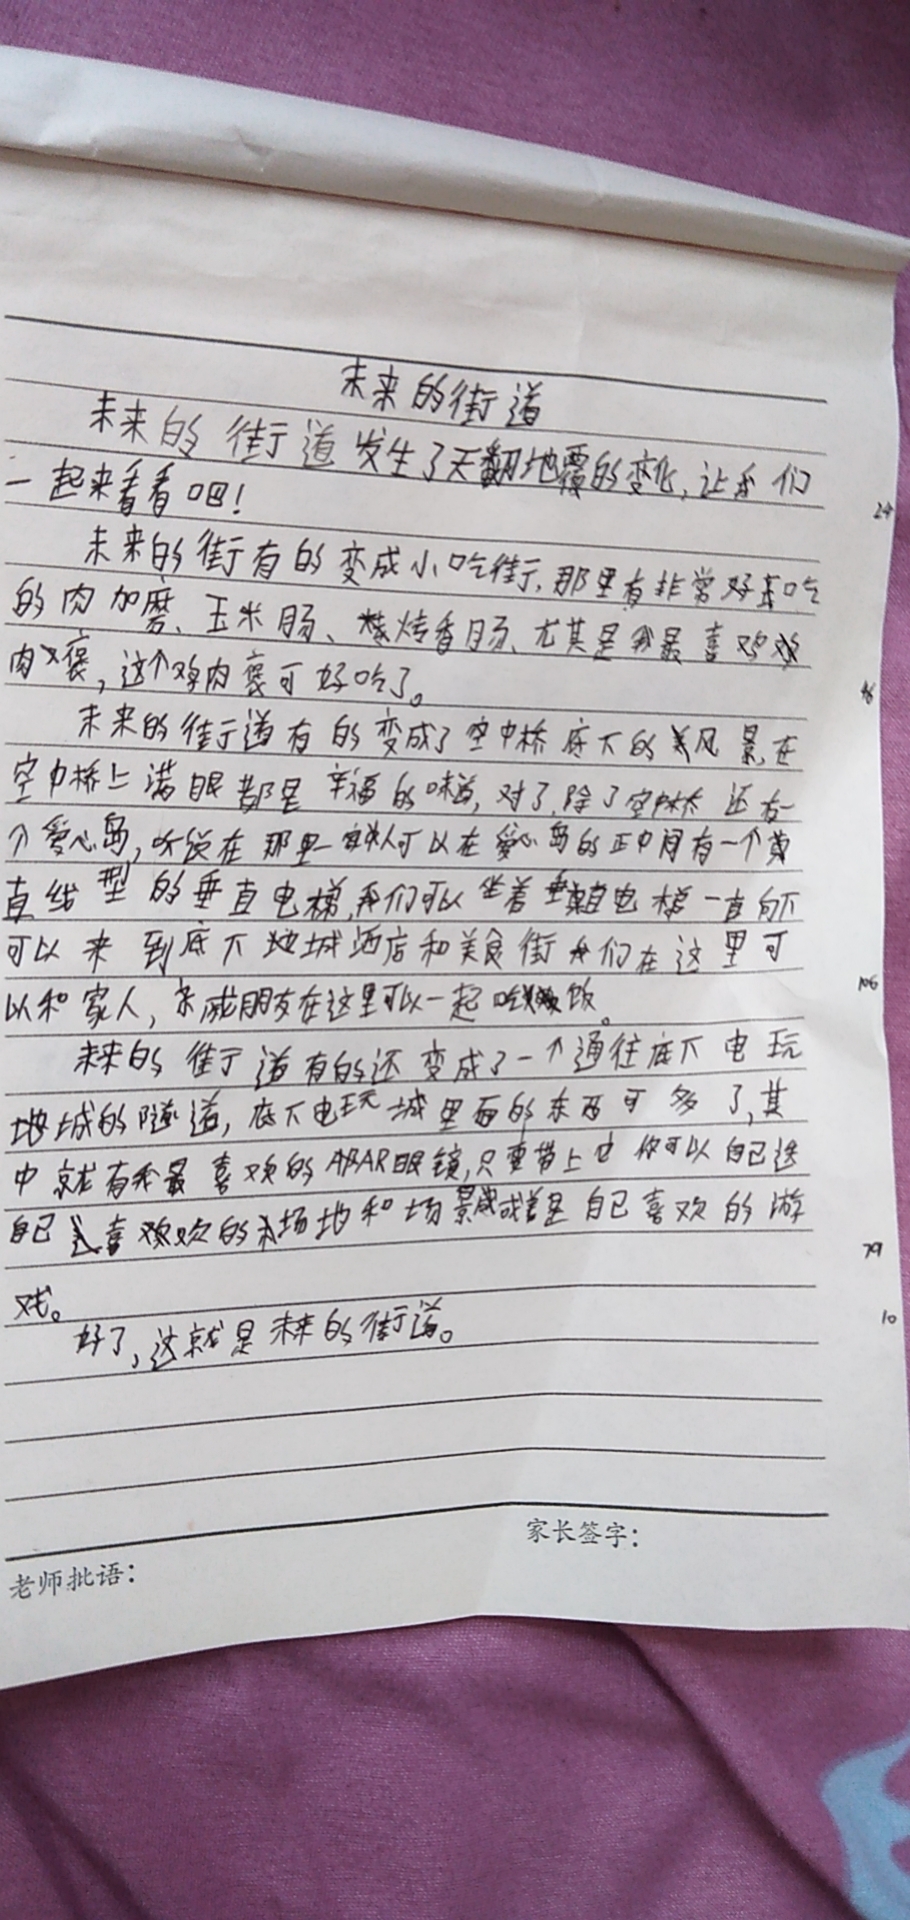 未来的街道
未来的街道发生了天翻地覆的变化,让我们
一起来看看吧!
24
未来的街有的变成小吃街,那里有非常好吃
的肉加磨、玉米肠、烤香肠,尤其是我最喜欢
肉褒,这个鸡肉褒可好吃了。
未来的街道有的变成了空中桥底下的美风景,在
空中桥上满眼都是幸福的味道,对了,除了空中桥还有一
个爱心岛,听说在那里一可以在爱心岛的正中间有一个黄
直线型的垂直电梯,我们可以坐着垂直电梯一直向下
可以来到底下地城酒店和美食街我们在这里可
以和家人,亲戚朋友在这里可以一起吃饭。
106
未来的街道有的还变成了一个通往底下电玩
地城的隧道,底下电玩城里面的东西可多了,其
中就有我最喜欢的ARAR眼镜,只要带上它你可以自己选
自己喜欢的场地和场景或者是自己喜欢的游
79
戏。
10
好了,这就是未来的街道。
家长签字:
老师批语: